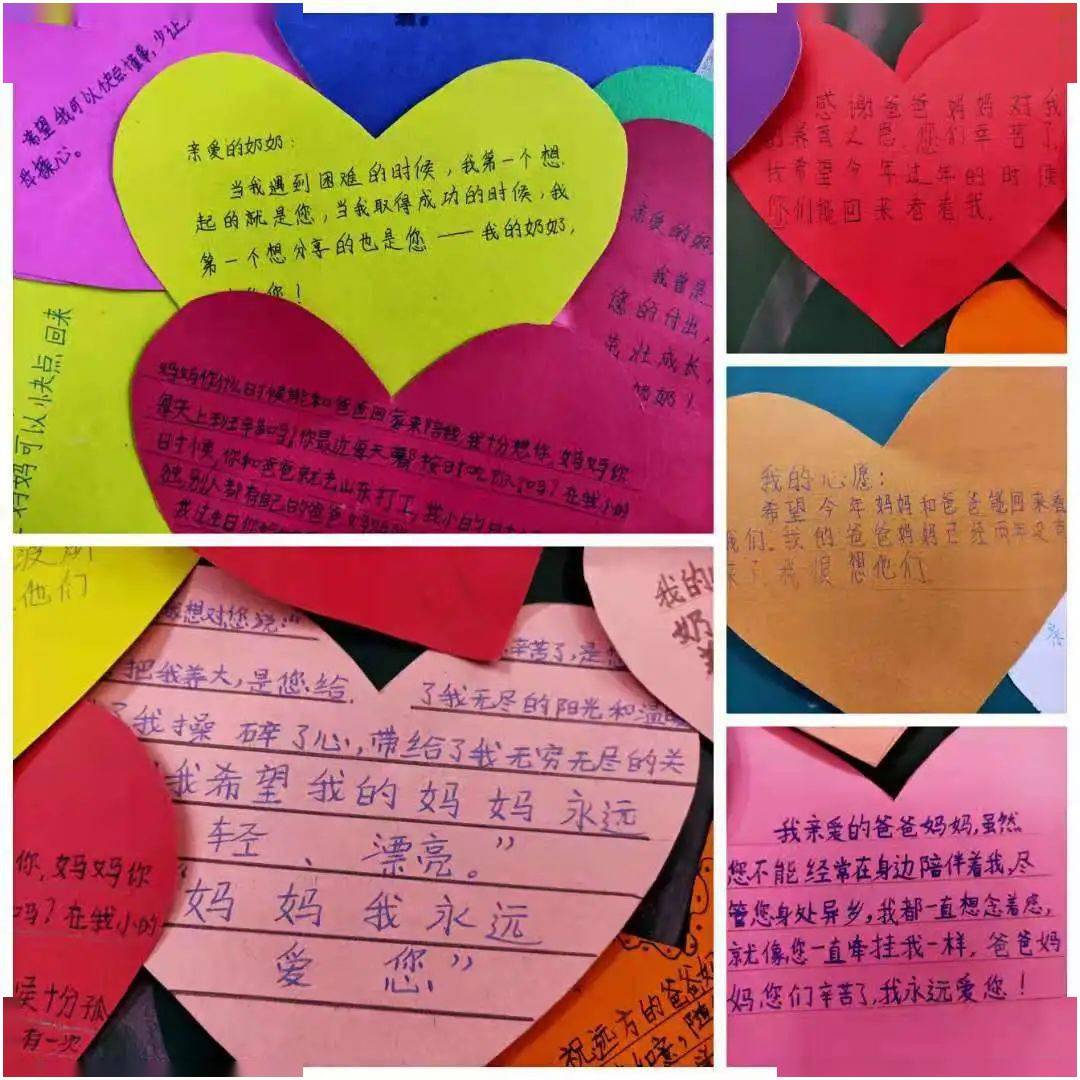 希望我可以快点懂事，少让
母操心。
亲爱的奶奶：
当我遇到困难的时候，我第一个想
起的就是您，当我取得成功的时候，我
第一个想分享的也是您——我的奶奶，
您！
亲爱的奶
我曾是
您的付出，
茁壮成长，
奶奶！
妈可以快点回来
妈妈你什么时候能和爸爸回家来陪我，我十分想你，妈妈你
每天上班辛苦吗？你最近每天都按时吃饭了吗？在我小的
时候，你和爸爸就去山东打工，我小的时
别人都有自己的爸爸妈妈
我过生日你
感谢爸爸妈妈对我
的养育之恩，您们辛苦了，
我希望今年过年的时候
您们能回来看看我。
我的心愿：
希望今年妈妈和爸爸能回来看
我们。我的爸爸妈妈已经两年没有
来了，我很想他们
他们
我想对您说：“
辛苦了，是您
把我养大，是您给
了我无尽的阳光和温暖
了我操碎了心，带给了我无穷无尽的关
我希望我的妈妈永远
年轻、漂亮。”
妈妈我永远
爱您”
我的
奶
你，妈妈你
吗？在我小的
侯十分孤
有一次
祝远方的爸爸妈
意，随
我亲爱的爸爸妈妈，虽然
您不能经常在身边陪伴着我，尽
管您身处异乡，我都一直想念着您，
就像您一直牵挂我一样，爸爸妈
妈您们辛苦了，我永远爱您！
亲